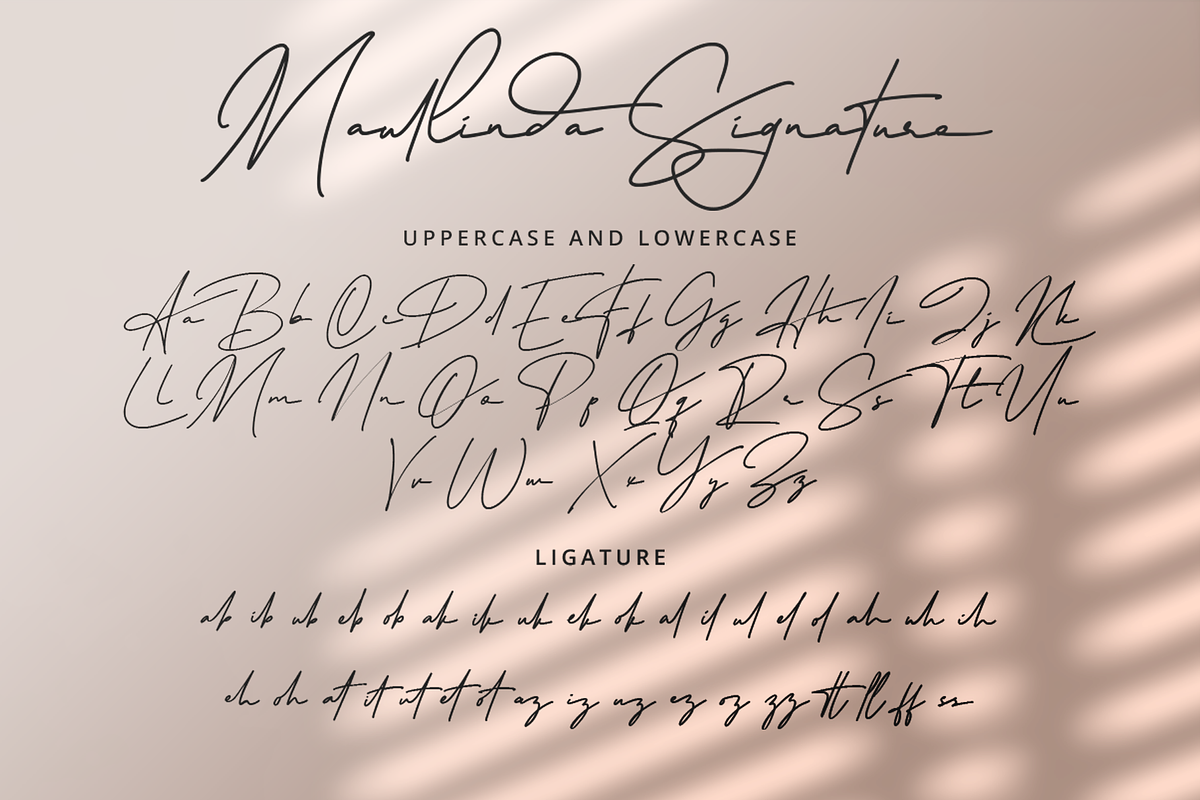 Maullinda Signature
UPPERCASE AND LOWERCASE
Aa Bb Cc Dd Ee Ff Gg Hh Ii Jj Kk
Ll Mm Nn Oo Pp Qq Rr Ss Tt Uu
Vv Ww Xx Yy Zz
LIGATURE
ab ib ub eb ob ak ik uk ek ok al il ul el ol ah uh ih
eh oh at it ut et ot az iz uz ez oz zz tt ll ff ss